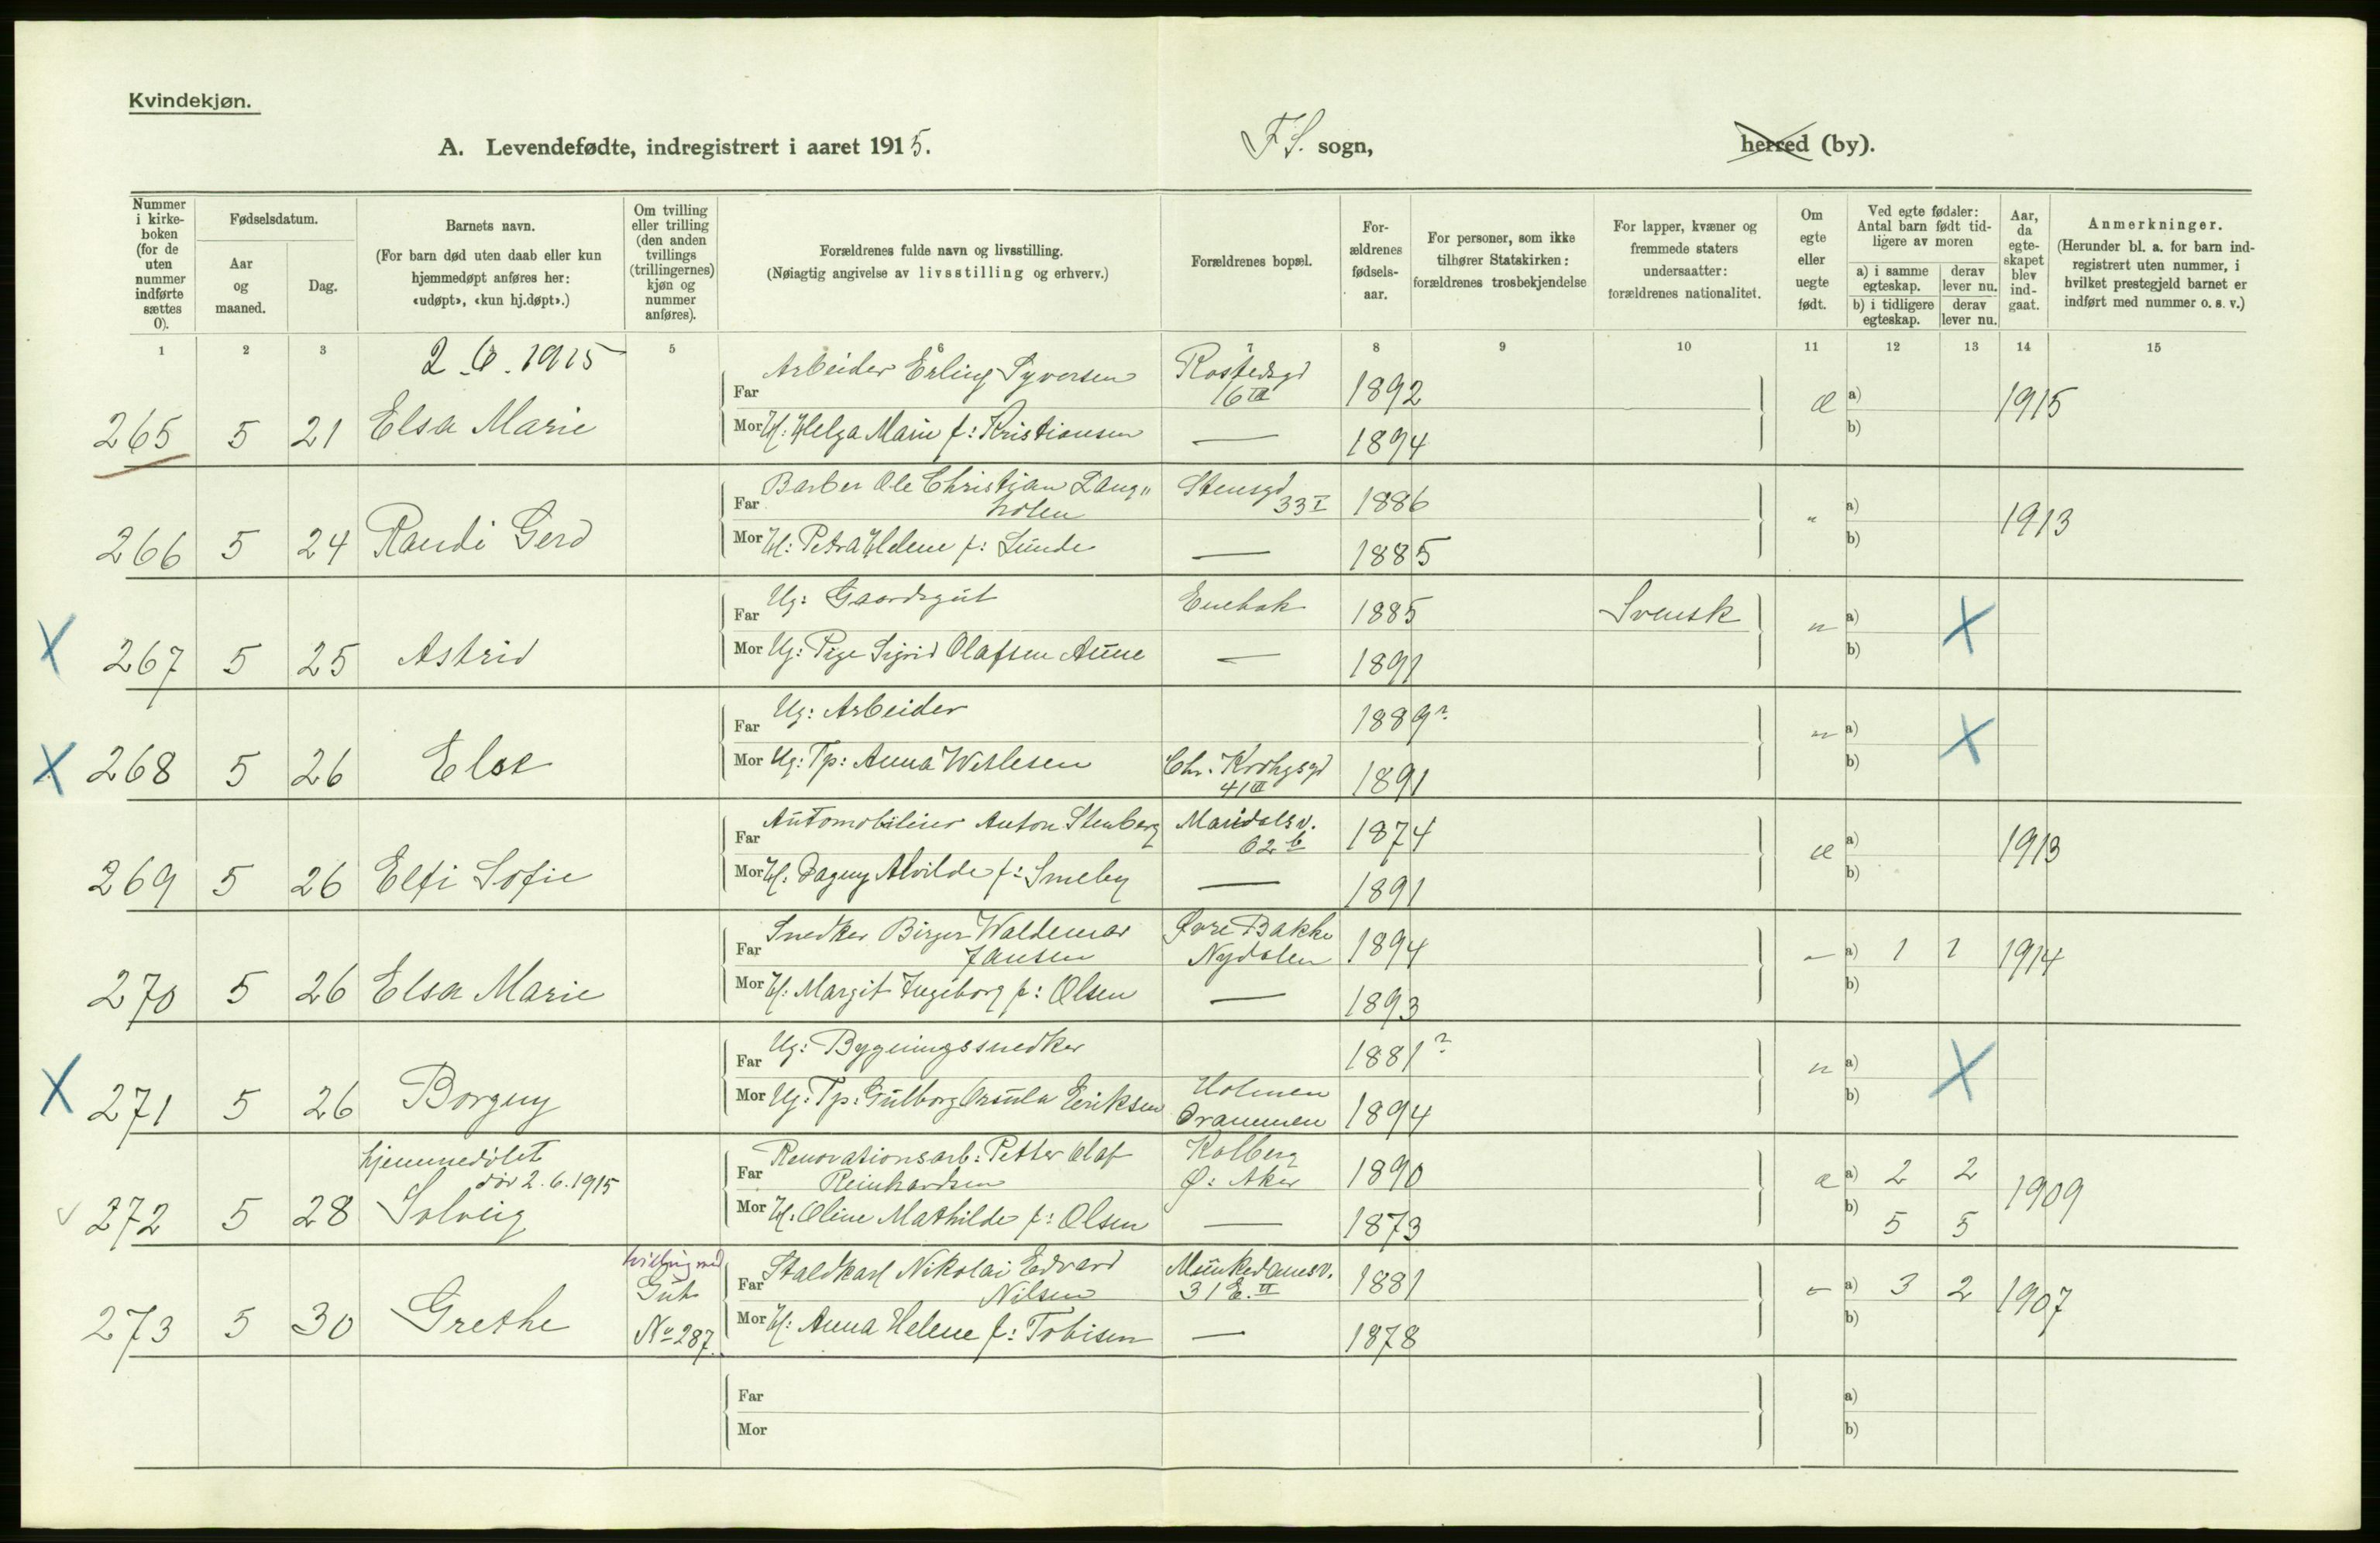 Kvindekjøn.
A. Levendefødte, indregistrert i aaret 1915.
F.S. sogn,
herred (by).
Nummer i kirke-boken (for de uten nummer indførte sættes 0).
Fødselsdatum.
Aar og maaned.
Dag.
Barnets navn.
(For barn død uten daab eller kun hjemmedøpt anføres her: «udøpt», «kun hj.døpt».)
Om tvilling eller trilling (den anden tvillings (trillingernes) kjøn og nummer anføres).
Forældrenes fulde navn og livsstilling.
(Nøiagtig angivelse av livsstilling og erhverv.)
Forældrenes bopæl.
For-ældrenes fødsels-aar.
For personer, som ikke tilhører Statskirken: forældrenes trosbekjendelse
For lapper, kvæner og fremmede staters undersaatter: forældrenes nationalitet.
Om egte eller uegte født.
Ved egte fødsler: Antal barn født tid-ligere av moren
a) i samme egteskap.
derav lever nu.
b) i tidligere egteskap.
derav lever nu.
Aar, da egte-skapet blev ind-gaat.
Anmerkninger.
(Herunder bl. a. for barn ind-registrert uten nummer, i hvilket prestegjeld barnet er indført med nummer o. s. v.)
1 2 3 5 6 7 8 9 10 11 12 13 14 15
2.6.1915
265 5 21 Elsa Marie
Far Arbeider Erling Syversen Rostedsgd 16 III 1892 æ a) 1915
Mor H: Helga Marie f: Kristiansen — 1894 b)
266 5 24 Randi Gerd
Far Barber Ole Christian Lang"holen Stensgd 33 I 1886 " a) 1913
Mor H: Petra Helene f: Lunde — 1885 b)
X 267 5 25 Astrid
Far Ug: Gaardsgut Enebak 1885 Svensk u a) X
Mor Ug: Pige Sigrid Olafsen Aune — 1891 b)
X 268 5 26 Else
Far Ug: Arbeider 1889? u a) X
Mor Ug: Tp: Anna Wetlesen Chr. Krohgsgd 41 III 1891 b)
269 5 26 Elfi Sofie
Far Automobileier Anton Stenberg Maridalsv. 62 b 1874 æ a) 1913
Mor H: Dagny Alvilde f: Smeby — 1891 b)
270 5 26 Elsa Marie
Far Snedker Birger Waldemar Jansen Øvre Bakke Nydalen 1894 — a) 1 1 1914
Mor H: Margit Ingeborg f: Olsen — 1893 b)
X 271 5 26 Borgny
Far Ug: Bygningssnedker 1881? u a) X
Mor Ug: Tp: Gulborg Ursula Eriksen Holmen Drammen 1894 b)
hjemmedøbt
dør 2.6.1915
272 5 28 Solveig
Far Renovationsarb: Petter Olaf Reinhardsen Kalberg Ø: Aker 1890 æ a) 2 2 1909
Mor H: Oline Mathilde f: Olsen — 1873 b) 5 5
tvilling med
Gut
No 287.
273 5 30 Grethe
Far Staldkarl Nikolai Edvard Nilsen Munkedamsv. 31 E. II 1881 — a) 3 2 1907
Mor H: Anna Helene f: Tobisen — 1878 b)
Far a)
Mor b)